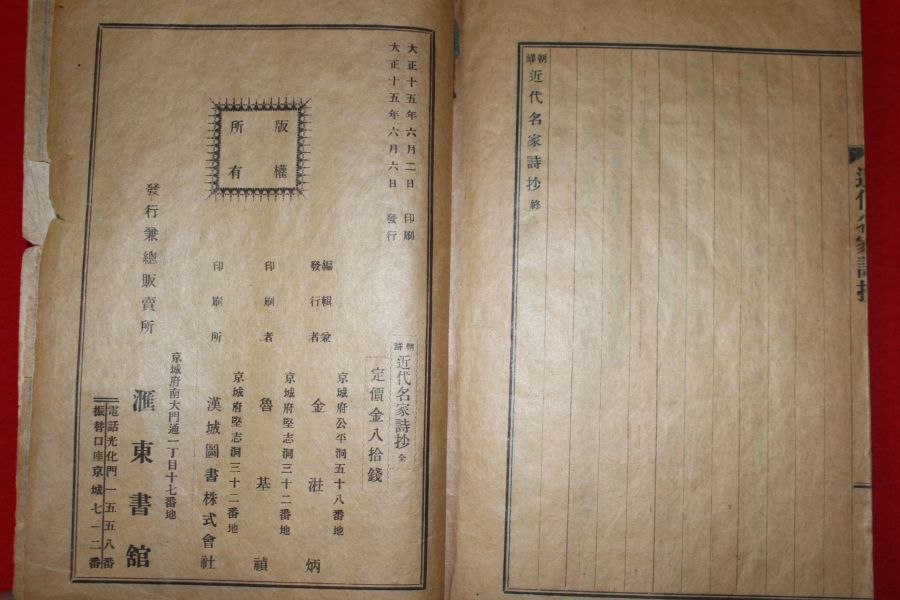 朝鮮近代名家詩抄 終
大正十五年六月二日 印刷
大正十五年六月六日 發行
版權
所有
近代名家詩抄 全
定價金八拾錢
京城府公平洞五十八番地
編輯兼
發行者 金 炳
京城府堅志洞三十二番地
印刷者 魯基禎
京城府堅志洞三十二番地
印刷所 漢城圖書株式會社
發行兼總販賣所
京城府南大門通一丁目十七番地
滙東書舘
電話光化門一五五八番
振替口座京城七一二番